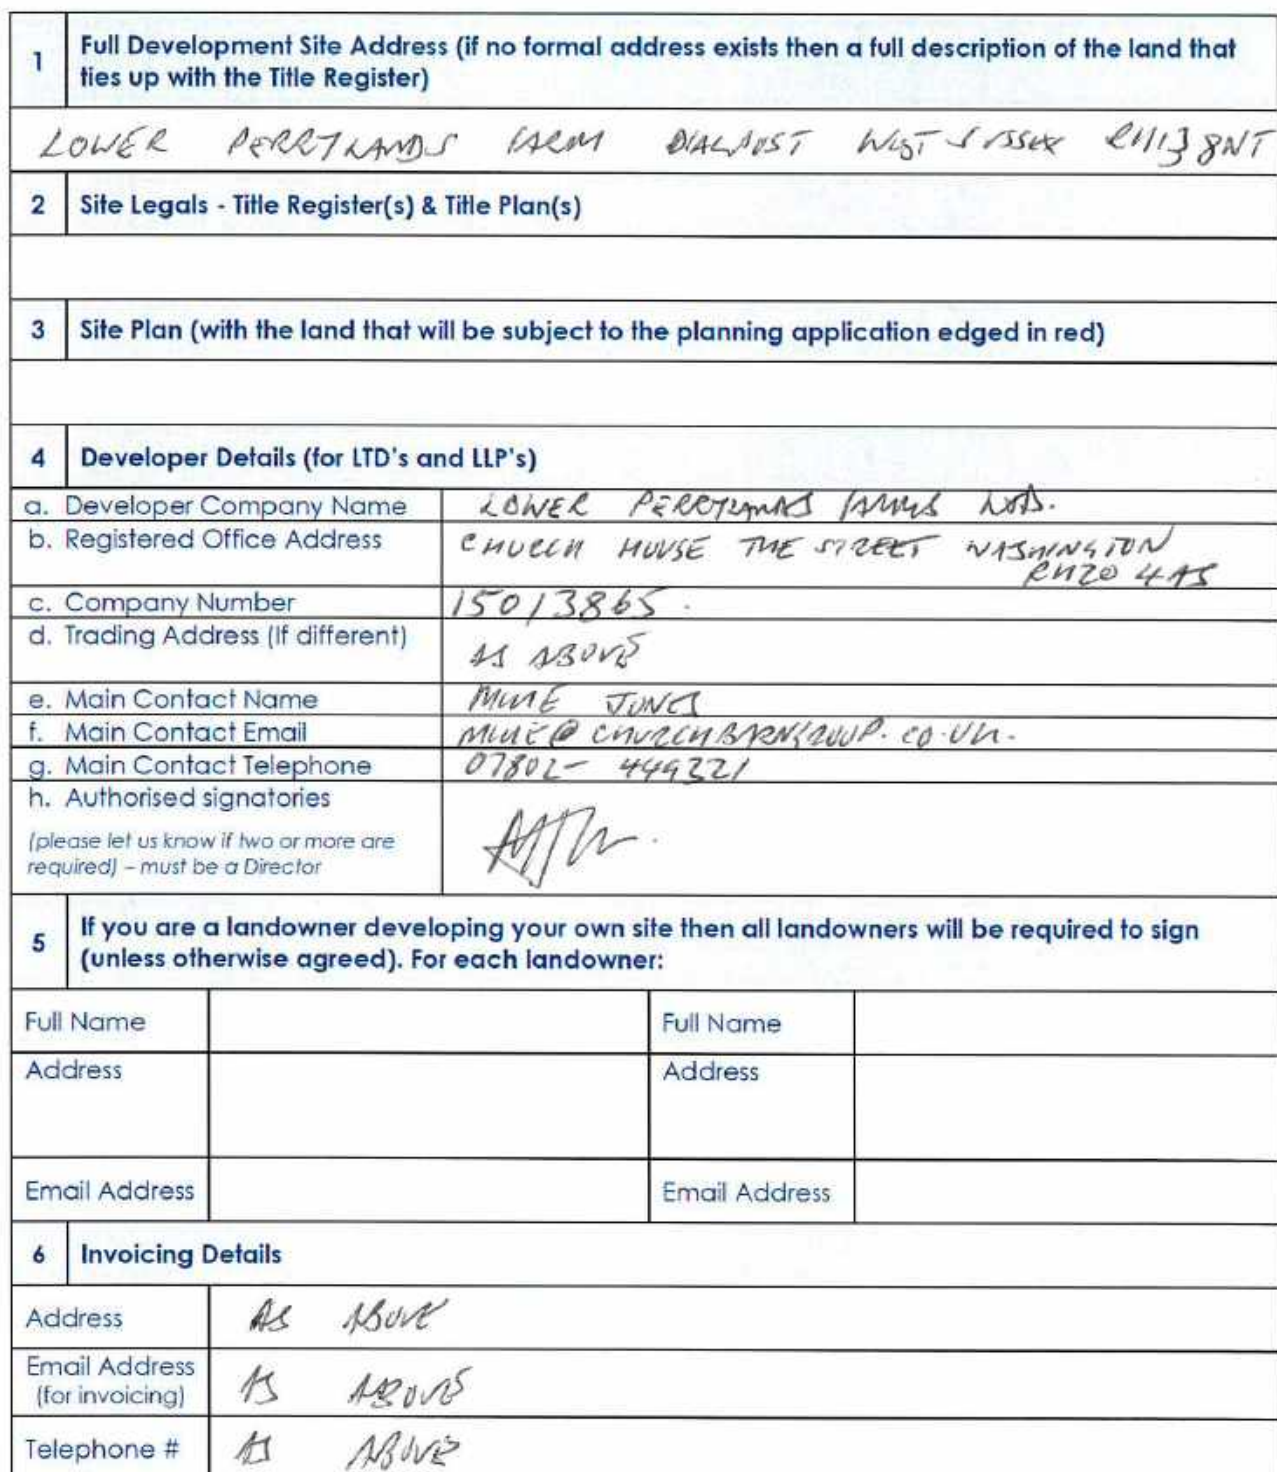 1 Full Development Site Address (if no formal address exists then a full description of the land that
ties up with the Title Register)
LOWER PERRYLANDS FARM DIALPOST WEST SUSSEX RH13 8NT
2 Site Legals - Title Register(s) & Title Plan(s)
3 Site Plan (with the land that will be subject to the planning application edged in red)
4 Developer Details (for LTD's and LLP's)
a. Developer Company Name LOWER PERRYLANDS FARMS LTD.
b. Registered Office Address CHURCH HOUSE THE STREET WASHINGTON
RH20 4AS
c. Company Number 15013865.
d. Trading Address (If different) AS ABOVE
e. Main Contact Name MIKE JONES
f. Main Contact Email MIKE@CHURCHBARNGROUP.CO.UK.
g. Main Contact Telephone 07802-
h. Authorised signatories
(please let us know if two or more are
required) – must be a Director
5 If you are a landowner developing your own site then all landowners will be required to sign
(unless otherwise agreed). For each landowner:
Full Name Full Name
Address Address
Email Address Email Address
6 Invoicing Details
Address AS ABOVE
Email Address
(for invoicing) AS ABOVE
Telephone # AS ABOVE